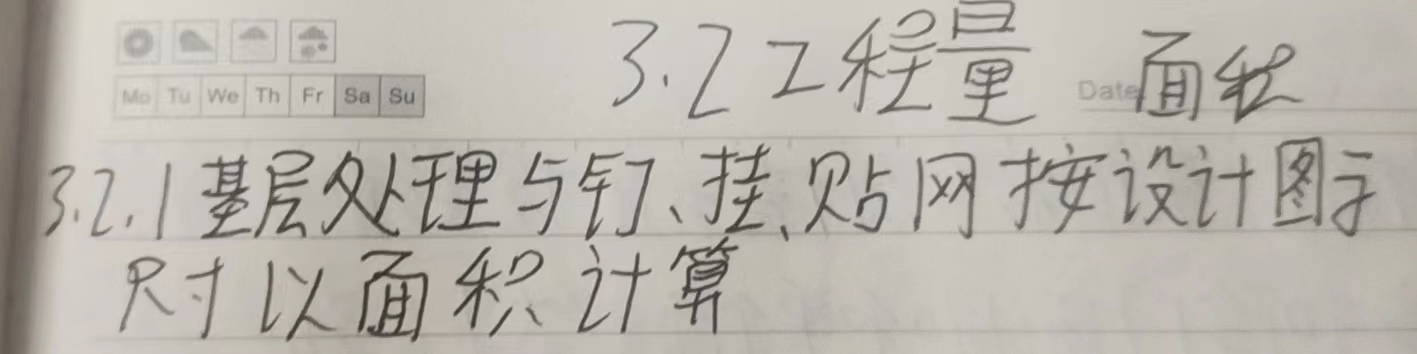 Mo Tu We Th Fr Sa Su
3.2 工程量 Date 面积
3.2.1 基层处理与钉、挂、贴网按设计图示
尺寸以面积计算